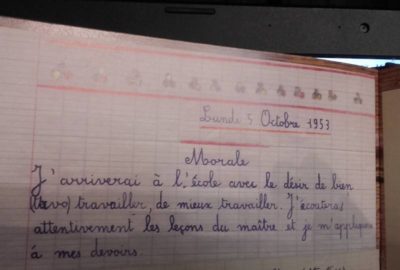 Lundi 5 Octobre 1953
Morale
J'arriverai à l'école avec le désir de bien
travailler, de mieux travailler. J'écouterai
attentivement les leçons du maître et je m'appliquerai
à mes devoirs.